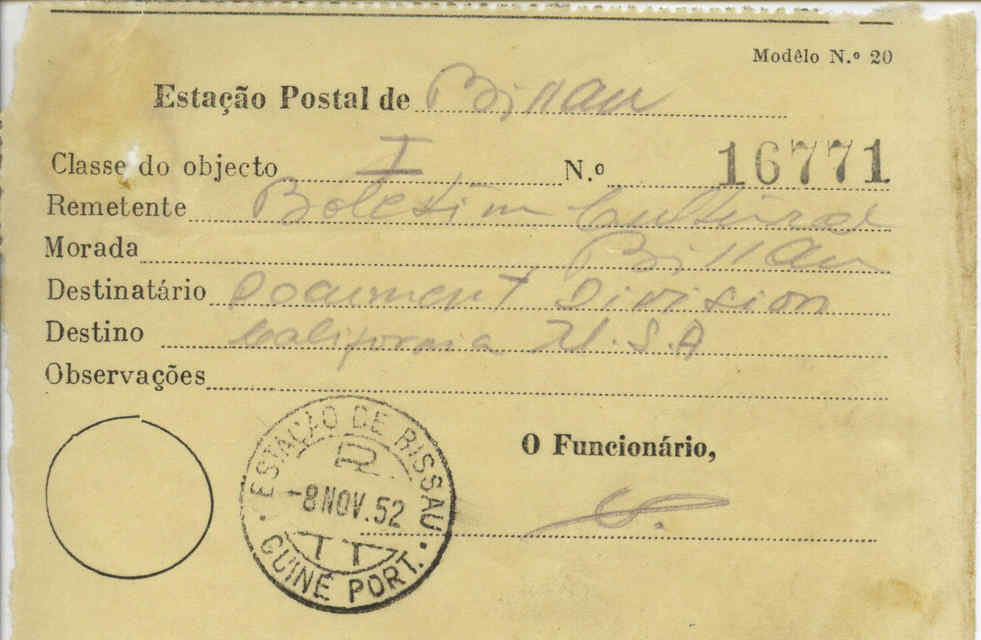 Modêlo N.º 20
Estação Postal de Bissau
Classe do objecto I N.º 16771
Remetente Boletim Cultural
Morada Bissau
Destinatário Document Division
Destino California U.S.A
Observações
O Funcionário,
ESTAÇÃO DE BISSAU
R
-8 NOV. 52
TT
GUINÉ PORT.